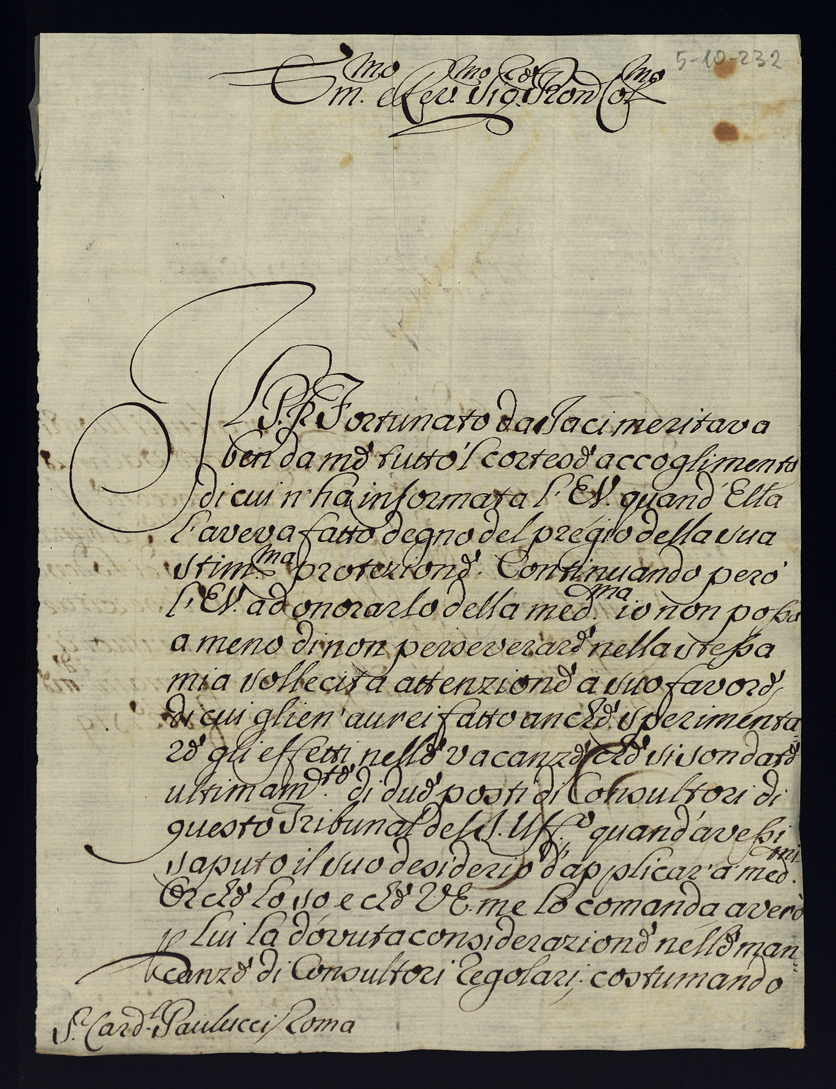 5-10-232
Em.mo e Rev.mo Sig.r Pron Col.mo
Il P. Fr. Fortunato da Jaci meritava
ben da me tutto 'l cortese accoglimento
di cui n'ha informata l'E.V. quand'Ella
l'aveva fatto degno del pregio della sua
stim.ma protezione. Continuando però
l'E.V. ad onorarlo della med.ma io non posso
a meno di non perseverare nella stessa
mia sollecita attenzione a suo favore,
di cui glien'aurei fatto anche sperimenta-
re gli effetti nelle vacanze che si son date
ultimam.te di due posti di Consultori di
questo Tribunal del S. Uff.o quand'avessi
saputo il suo desiderio d'applicar a med.mi
Or che lo so e che V.E. me lo comanda averò
p lui la dovuta considerazione nelle man-
canze di Consultori Regolari; costumando
S.r Card.l Paulucci Roma